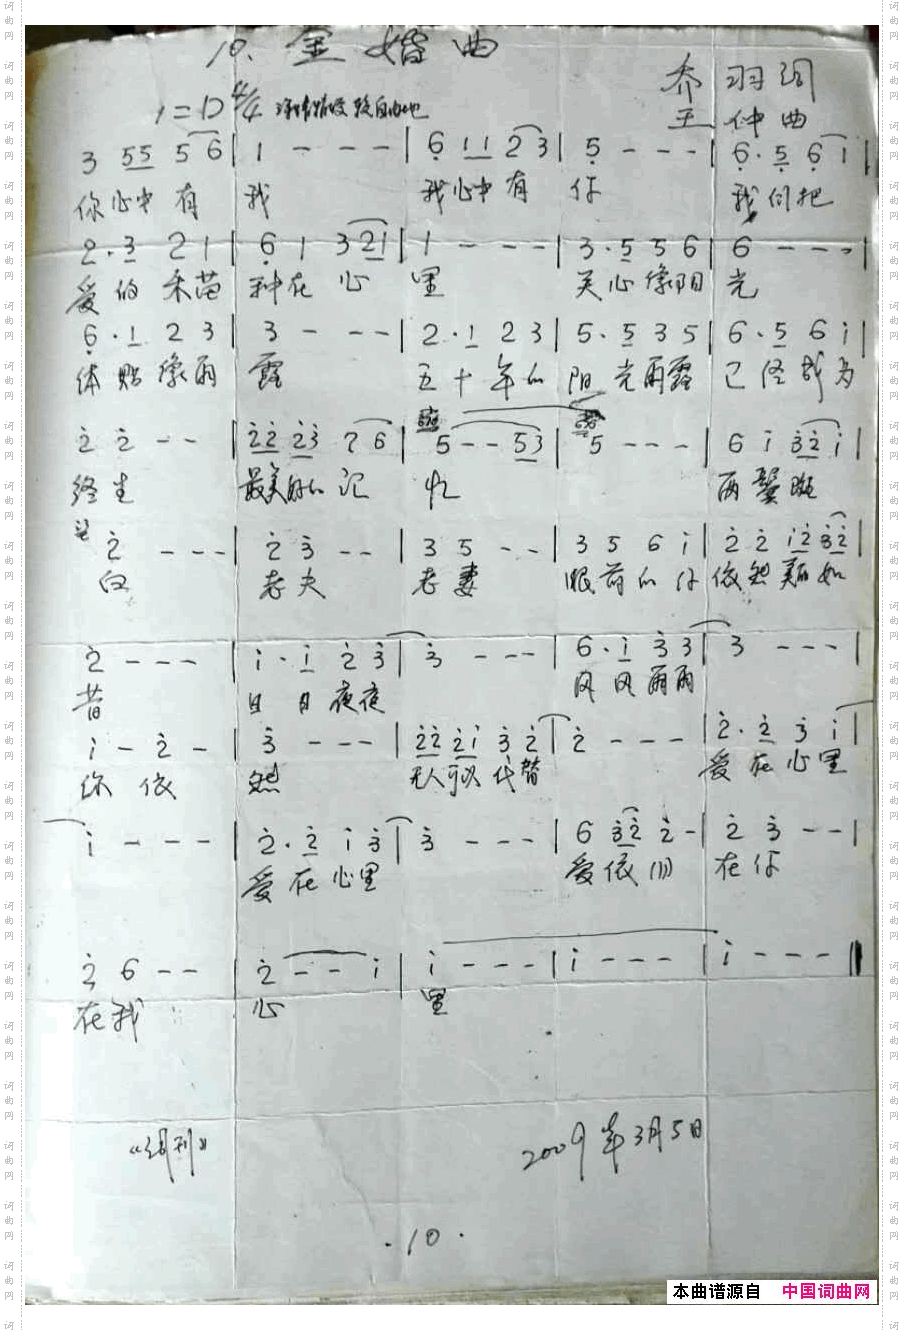 10. 金婚曲
乔羽词
1=D 4/4
王 仲曲
3 55 5 6 | 1 - - - | 6 11 2 3 | 5 - - - | 6·5 6 1 |
你 心中 有 我 我 心中 有 你 我们把
2·3 2 1 | 6 1 3 21 | 1 - - - | 3·5 5 6 | 6 - - - |
爱的 禾苗 种在 心 里 关心像阳 光
6·1 2 3 | 3 - - - | 2·1 2 3 | 5·5 3 5 | 6·5 6 i |
体贴像雨 露 五十年的 阳光雨露 已经成为
2 2 - - | 22 23 7 6 | 5 - - 53 | 5 - - - | 6 i 32 i |
终生 最美好的 记 忆 两鬓斑
2 - - - | 2 3 - - | 3 5 - - | 3 5 6 i | 2 2 i2 32 |
白 老夫 老妻 眼前的你 依然美丽如
2 - - - | i·i 2 3 | 3 - - - | 6·i 3 3 | 3 - - - |
昔 日日夜夜 风风雨雨
i - 2 - | 3 - - - | 22 2i 3 2 | 2 - - - | 2·2 3 i |
你 依 然 无人可以代替 爱在心里
i - - - | 2·2 i 3 | 3 - - - | 6 32 2 - | 2 3 - - |
爱在心里 爱依旧 在你
2 6 - - | 2 - - i | i - - - | i - - - | i - - - ||
在我 心 里
2009年3月5日
·10·
本曲谱源自 中国词曲网